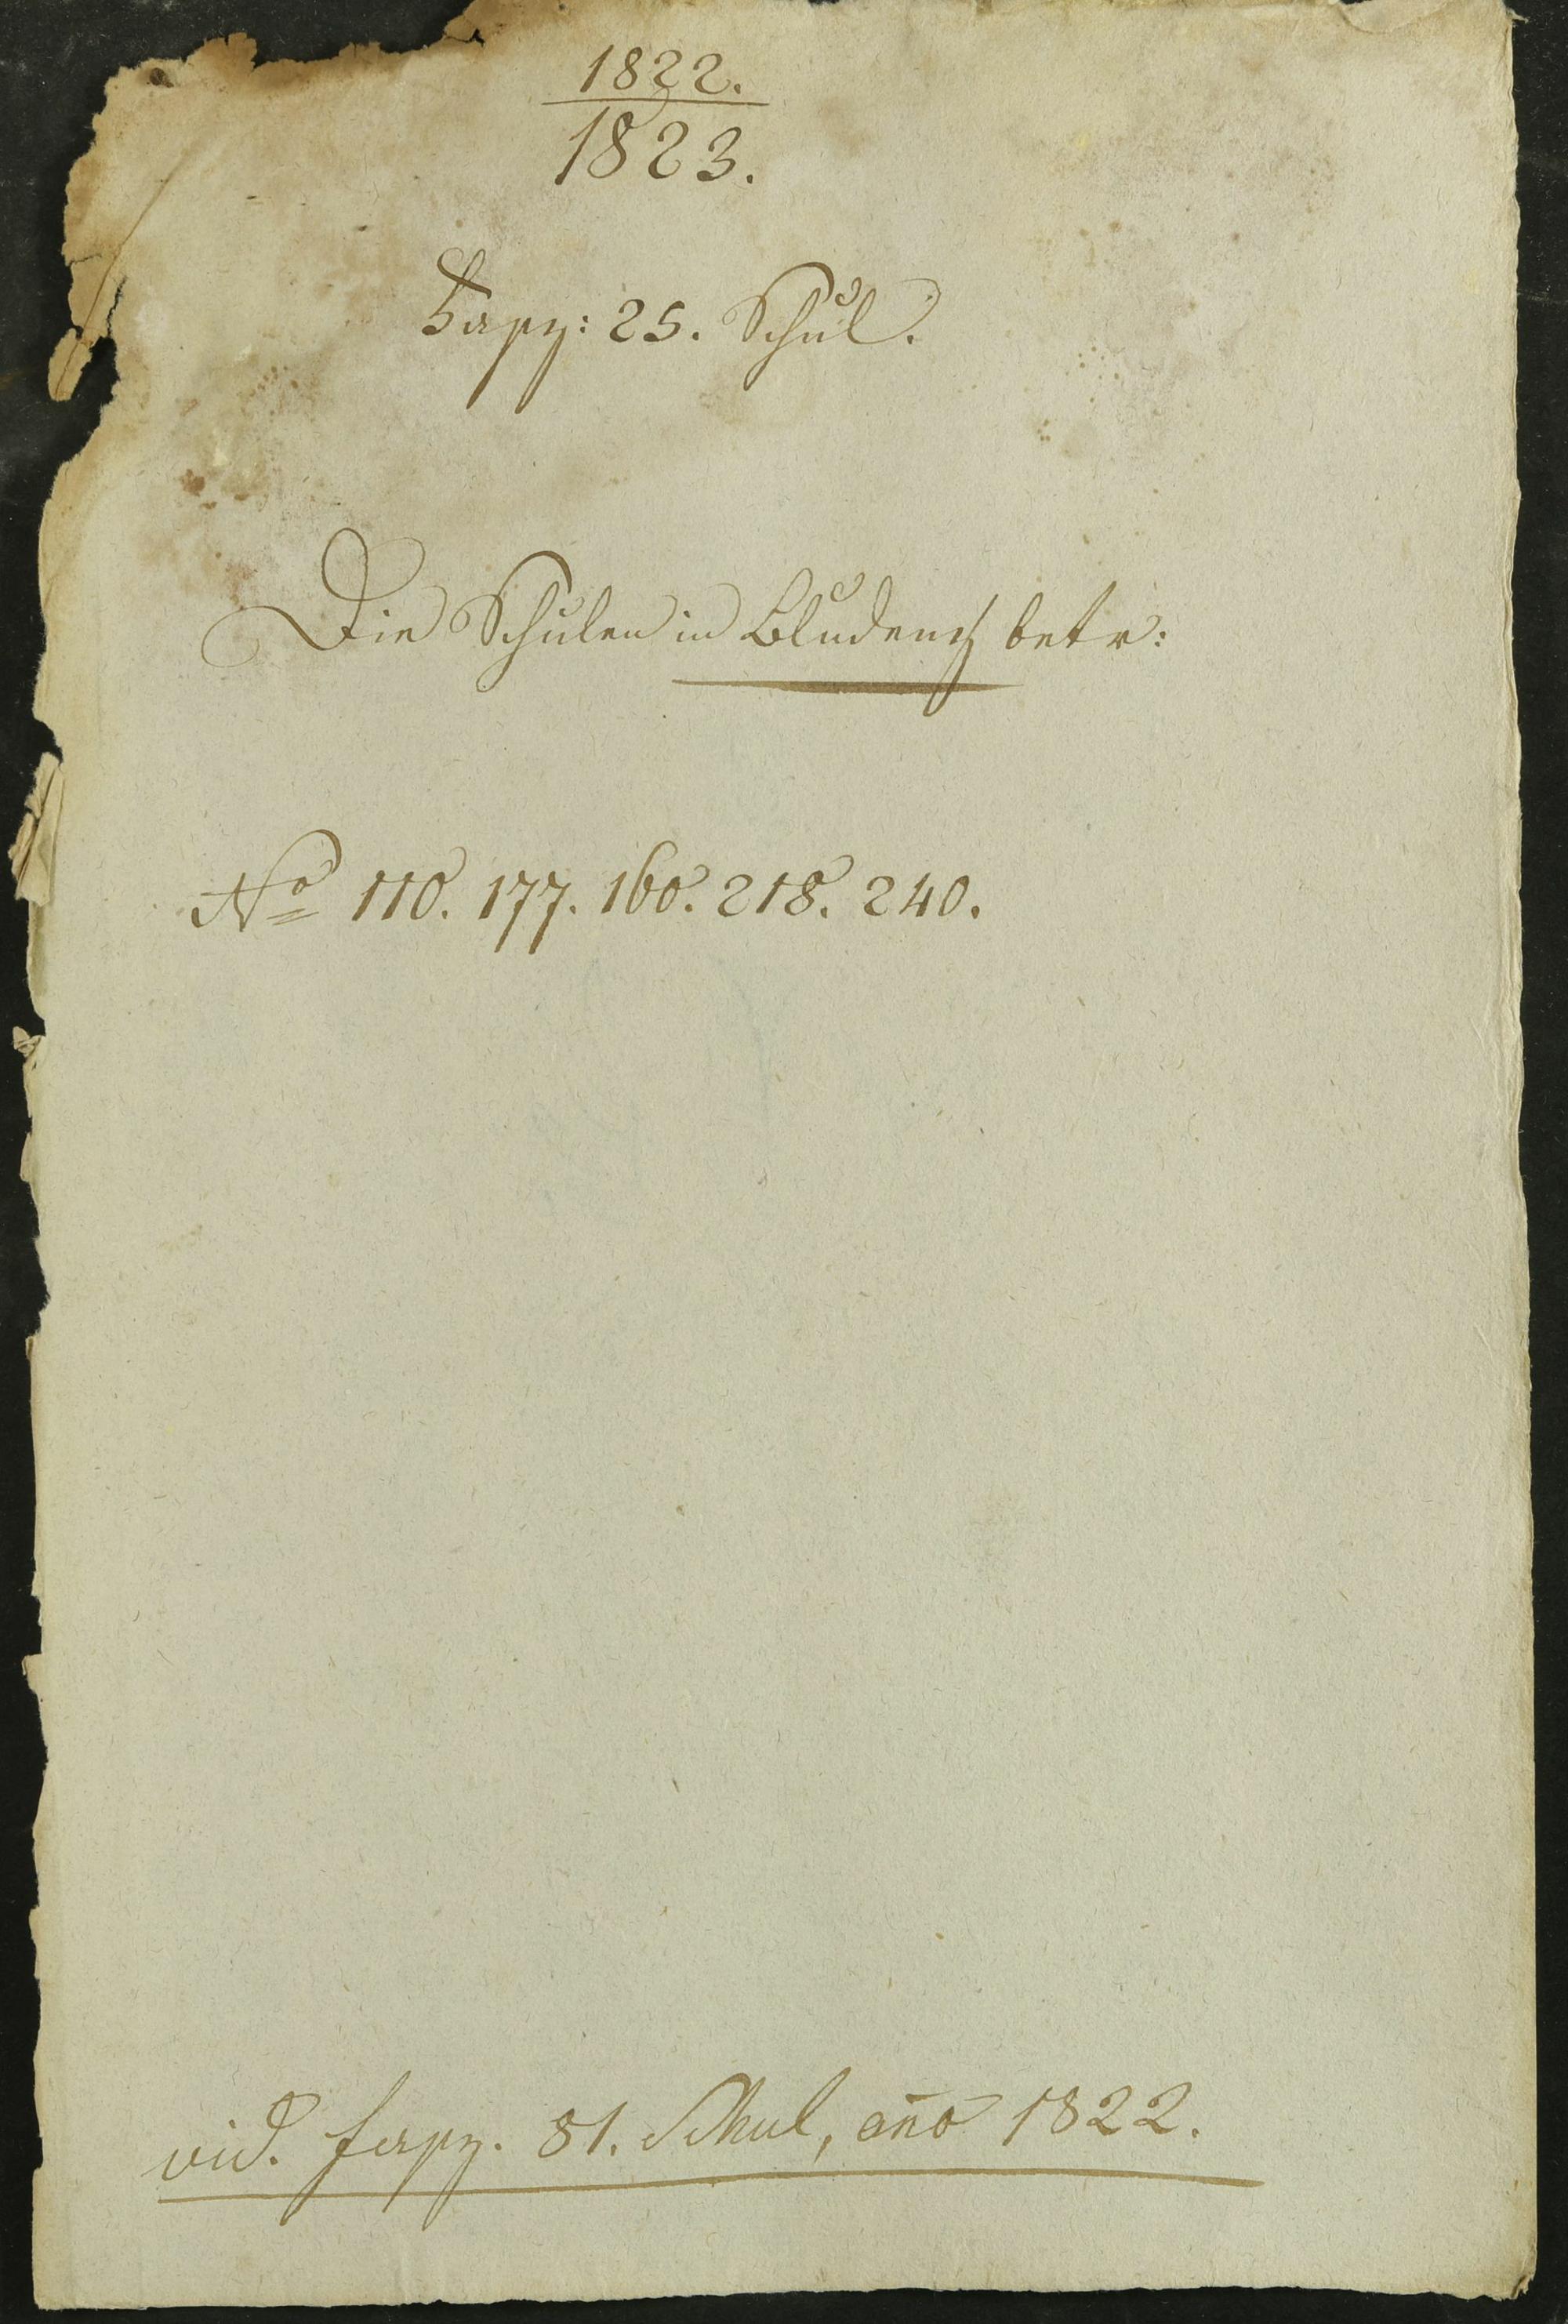 1822.
1823.
Fasz: 25. Schul.
Die Schulen in Bludenz betr:
No 110. 177. 160. 218. 240.
vid. fasz. 81. Schul, año 1822.